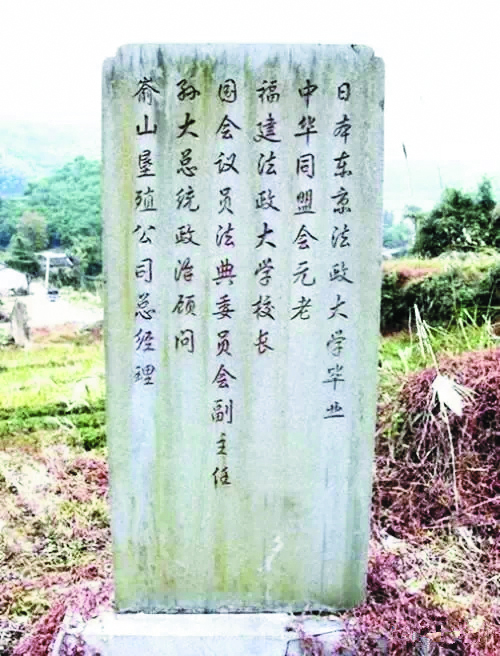 日本东京法政大学毕业
中华同盟会元老
福建法政大学校长
国会议员法典委员会副主任
孙大总统政治顾问
嵛山垦殖公司总经理